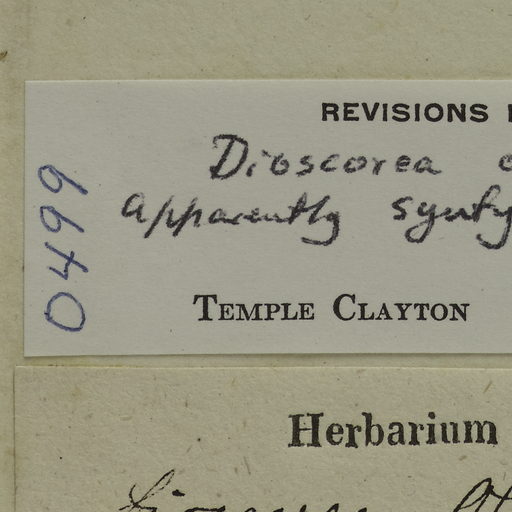 REVISIONS
Dioscorea
apparently synty
TEMPLE CLAYTON
0499
Herbarium